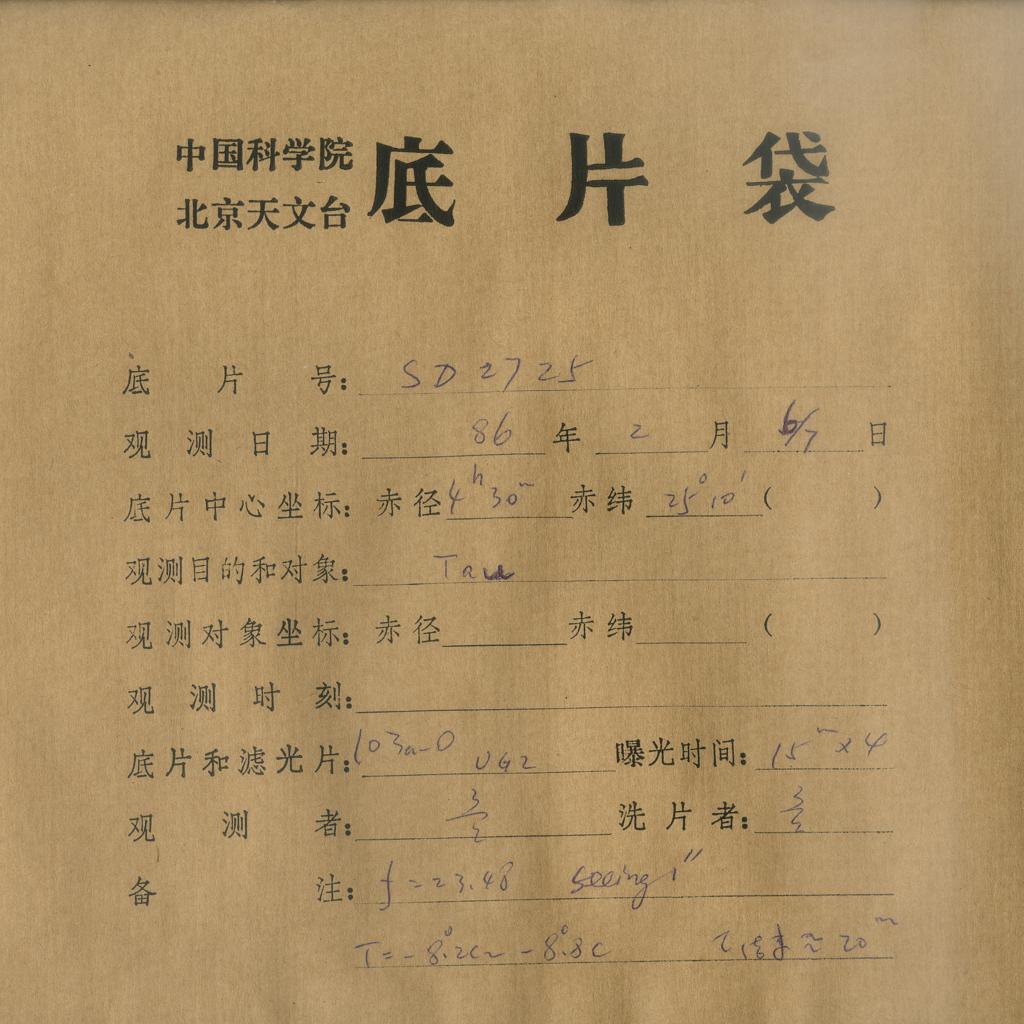 中国科学院
北京天文台
底片袋
底片号: SD2725
观测日期: 86年 2月 6/7日
底片中心坐标: 赤径 4h30m 赤纬 25°10′( )
观测目的和对象: Tau
观测对象坐标: 赤径 赤纬 ( )
观测时刻:
底片和滤光片: 103a-O UG2 曝光时间: 15m×4
观测者: 洗片者:
备注: f=23.48 seeing 1″
T=-8.°2C~-8.°8C ≈20m